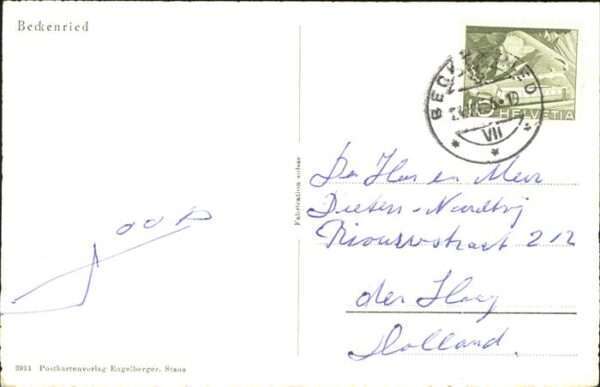 Beckenried
BECKENRIED
VII
10 HELVETIA
Fabrication suisse
De Heer en Mevr
Dieters-Noordtzij
212
den Haag
Holland.
Joop
3951 Postkartenverlag Engelberger, Stans